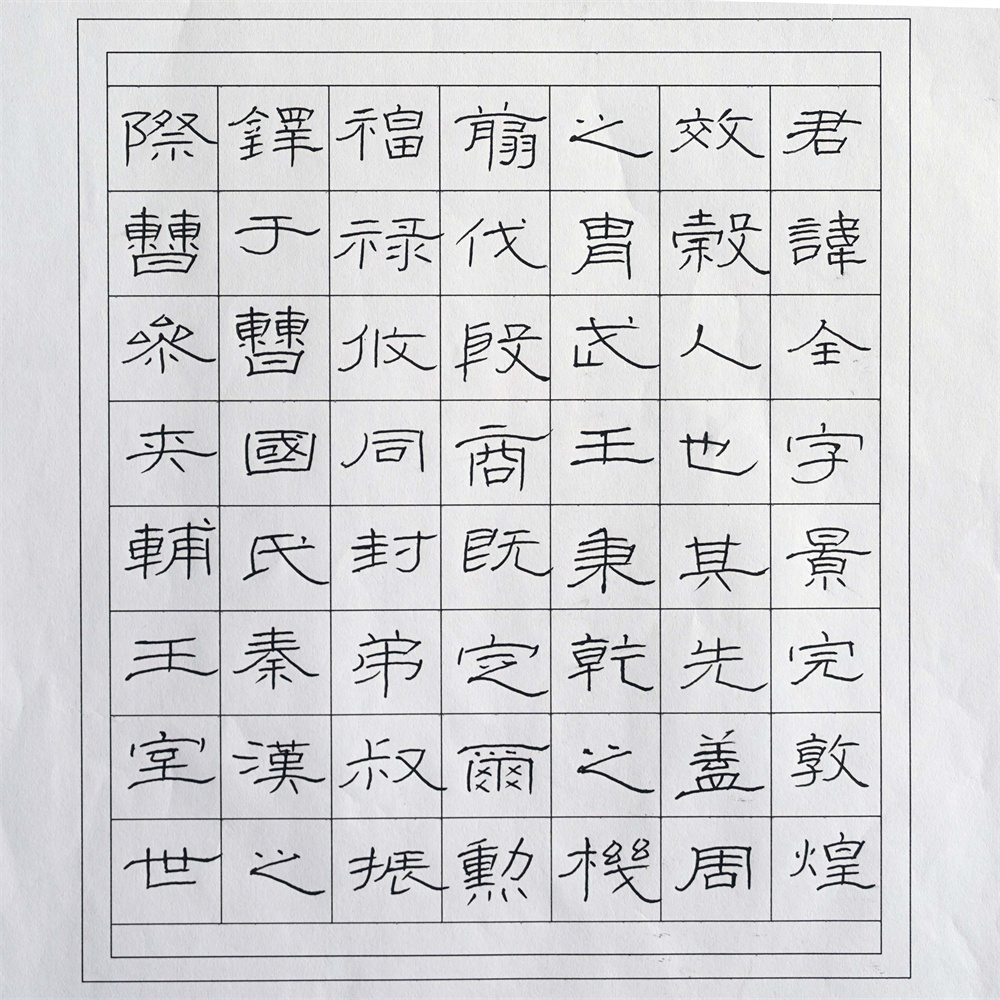 君諱全字景完敦煌
效穀人也其先盖周
之胄武王秉乾之機
翦伐殷商既定爾勳
福禄攸同封弟叔振
鐸于曹國氏秦漢之
際曹參夾輔王室世